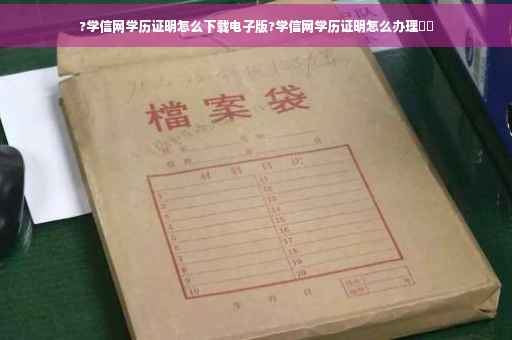 ?学信网学历证明怎么下载电子版?学信网学历证明怎么办理
檔案袋
材料目次
1 11
2 12
3 13
4 14
5 15
6 16
7 17
8 18
9 19
10 20
年 月 日